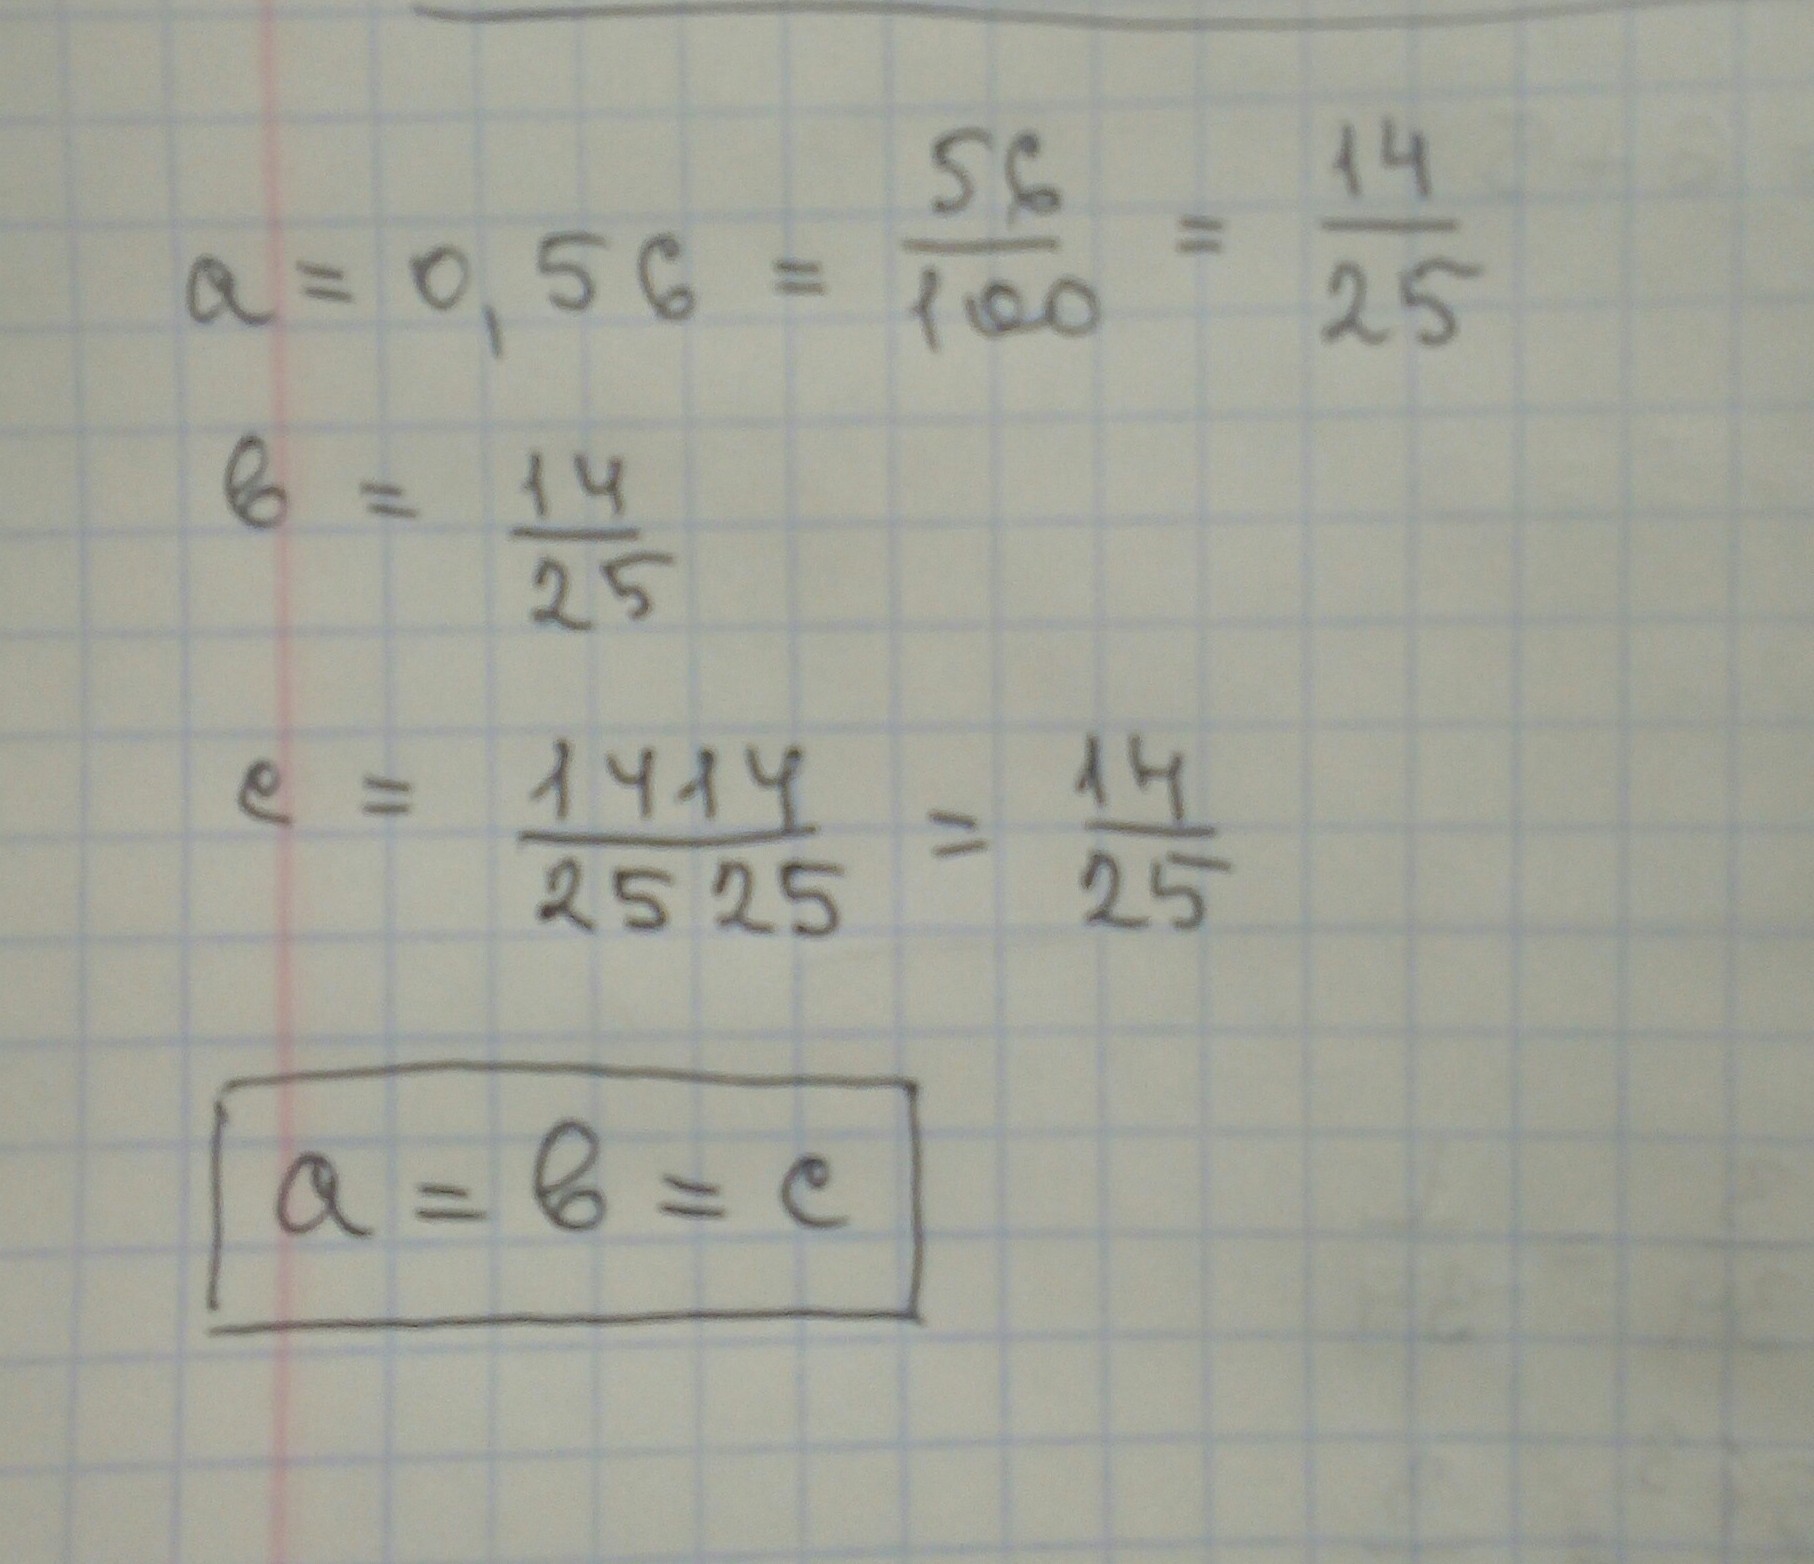 a = 0,56 = 56/100 = 14/25
b = 14/25
c = 1414/2525 = 14/25
a = b = c